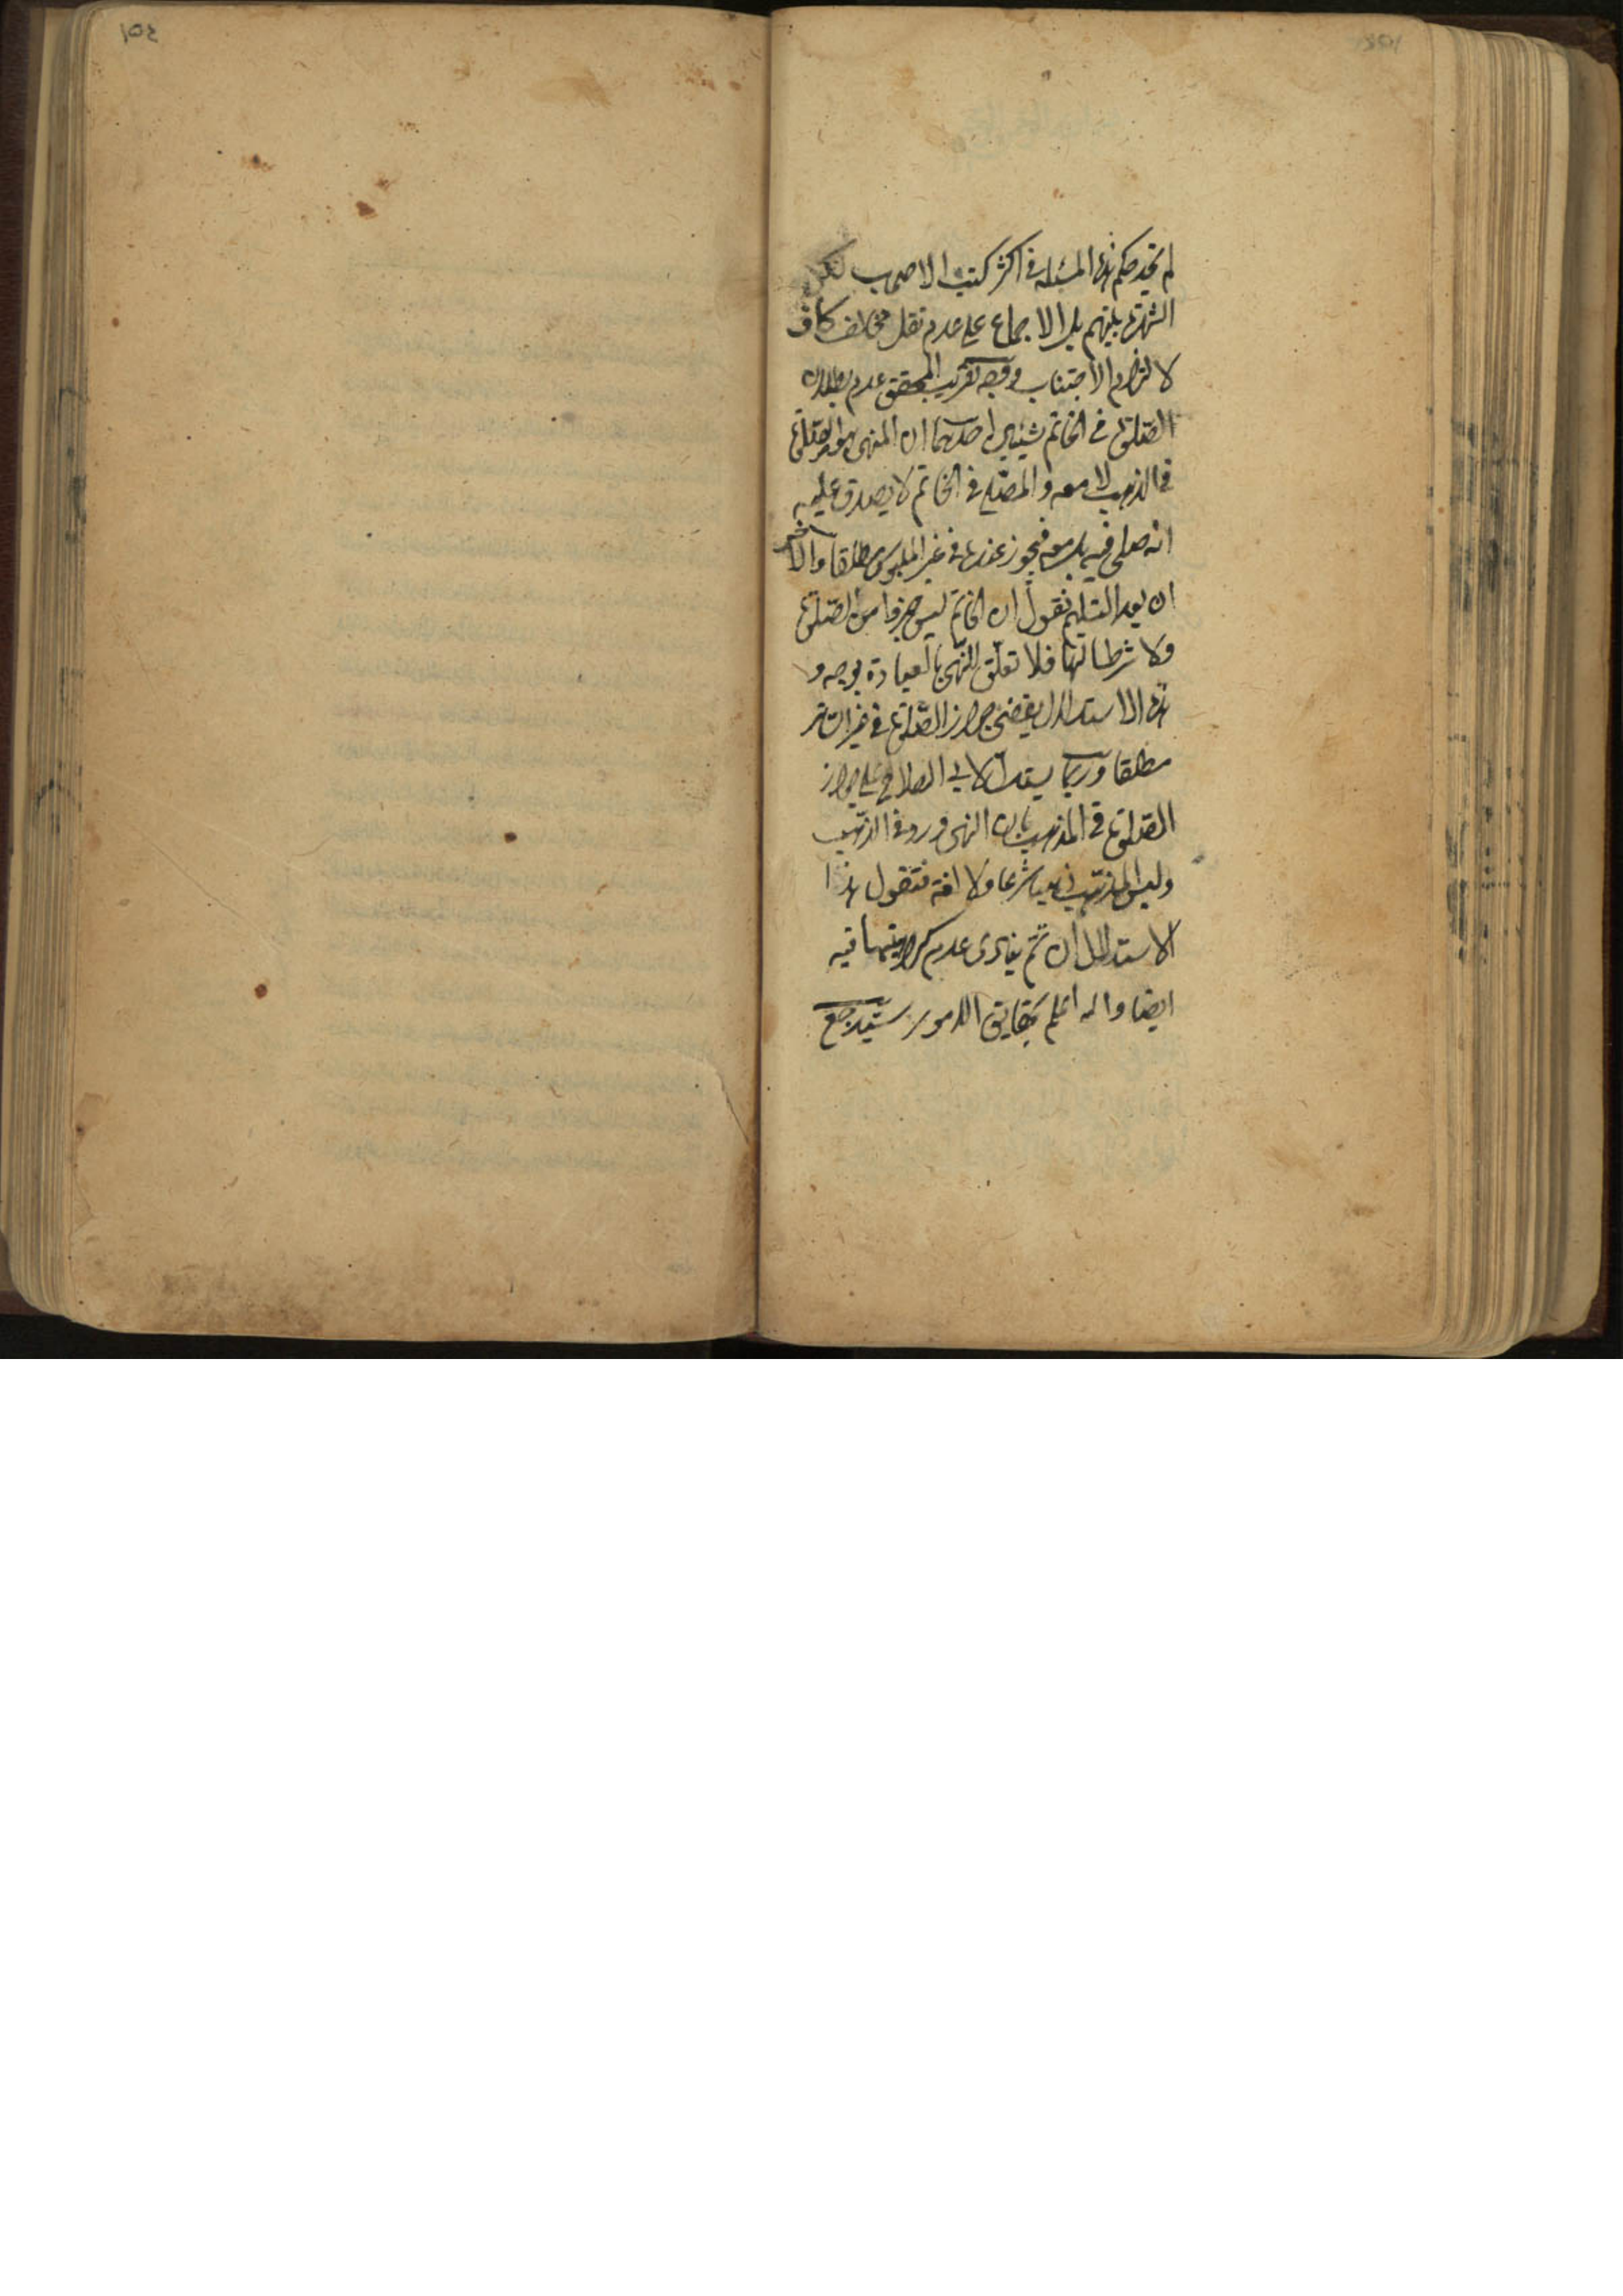 لم نجد حكم هذه المسئلة في اكثر كتب الاصحاب لكن
الشهرة بينهم بل الاجماع على عدم نقل مخالف كاف
لالزام الاجتناب ووجه تقريب المحقق عدم بطلان
الصلوة في الخاتم شيئين احدهما ان المنهى هو الصلوة
في الذهب لا معه والمصلي في الخاتم لا يصدق عليه
انه صلى فيه بل معه فيجوز عنده في غير الملبوس مطلقا والاخر
ان بعد التسليم نقول ان الخاتم ليس جزءا من الصلوة
ولا شرطا لها فلا تعلق للنهي بالعبادة بوجه و
هذا الاستدلال يقضى جواز الصلوة في غير الساتر
مطلقا وربما يستدل لابي الصلاح على جواز
الصلوة في المذهب بان النهى ورد في الذهب
وليس المذهب ذهبا شرعا ولا لغة فنقول هذا
الاستدلال ان تم ينادى عدم كراهيتها فيه
ايضا والله اعلم بحقايق الامور